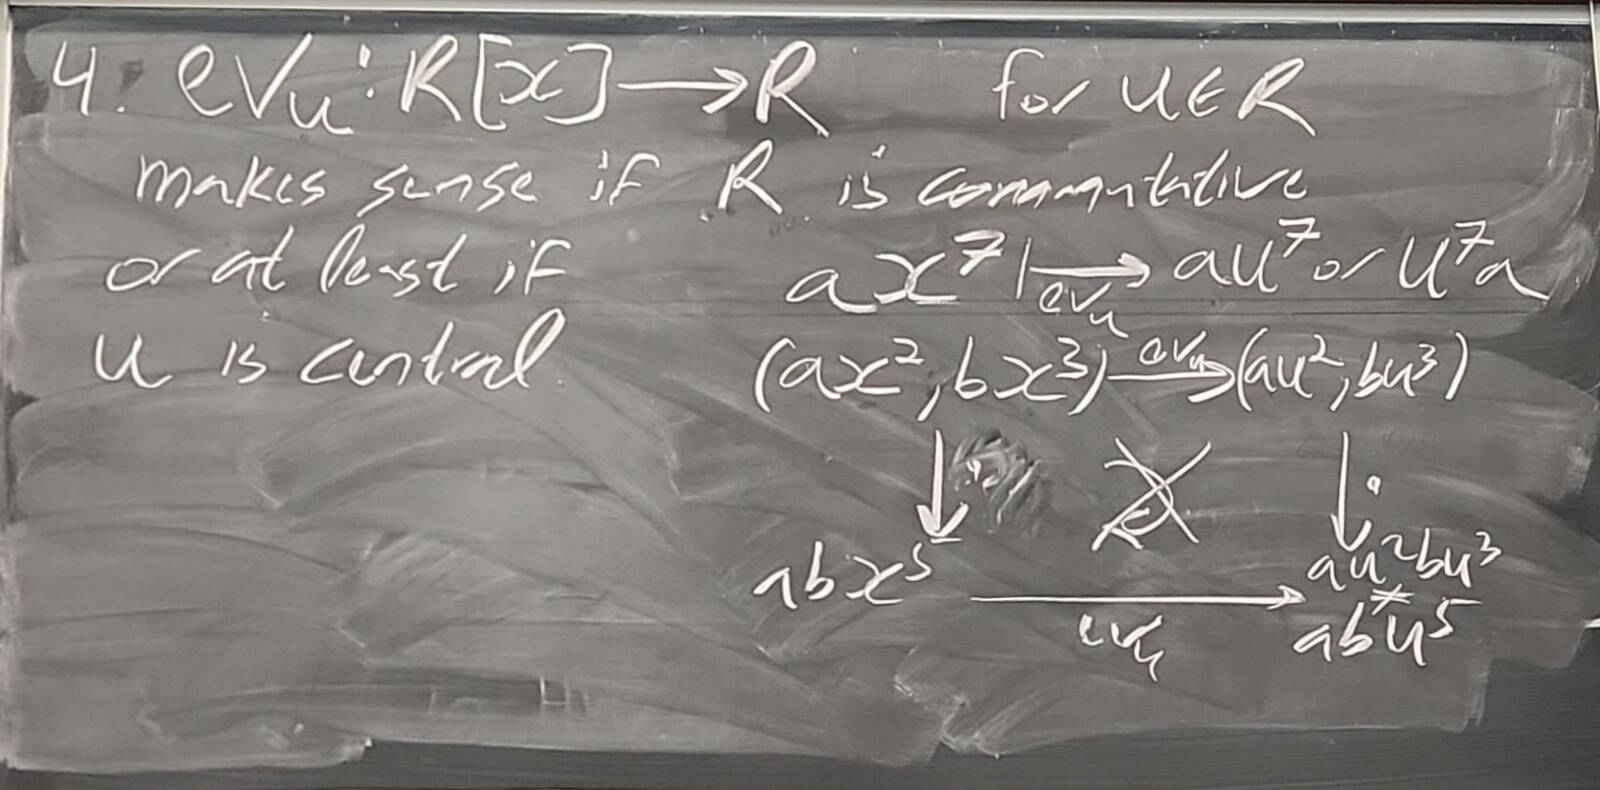 4. ev_u : R[x] → R for u ∈ R
makes sense if R is commutative
or at least if
u is central.
ax⁷ |→ au⁷ or u⁷a
ev_u
(ax², bx³) → (au², bu³)
ev_u
↓ · ↓ ·
abx⁵ → au²bu³
≠
ev_u abu⁵